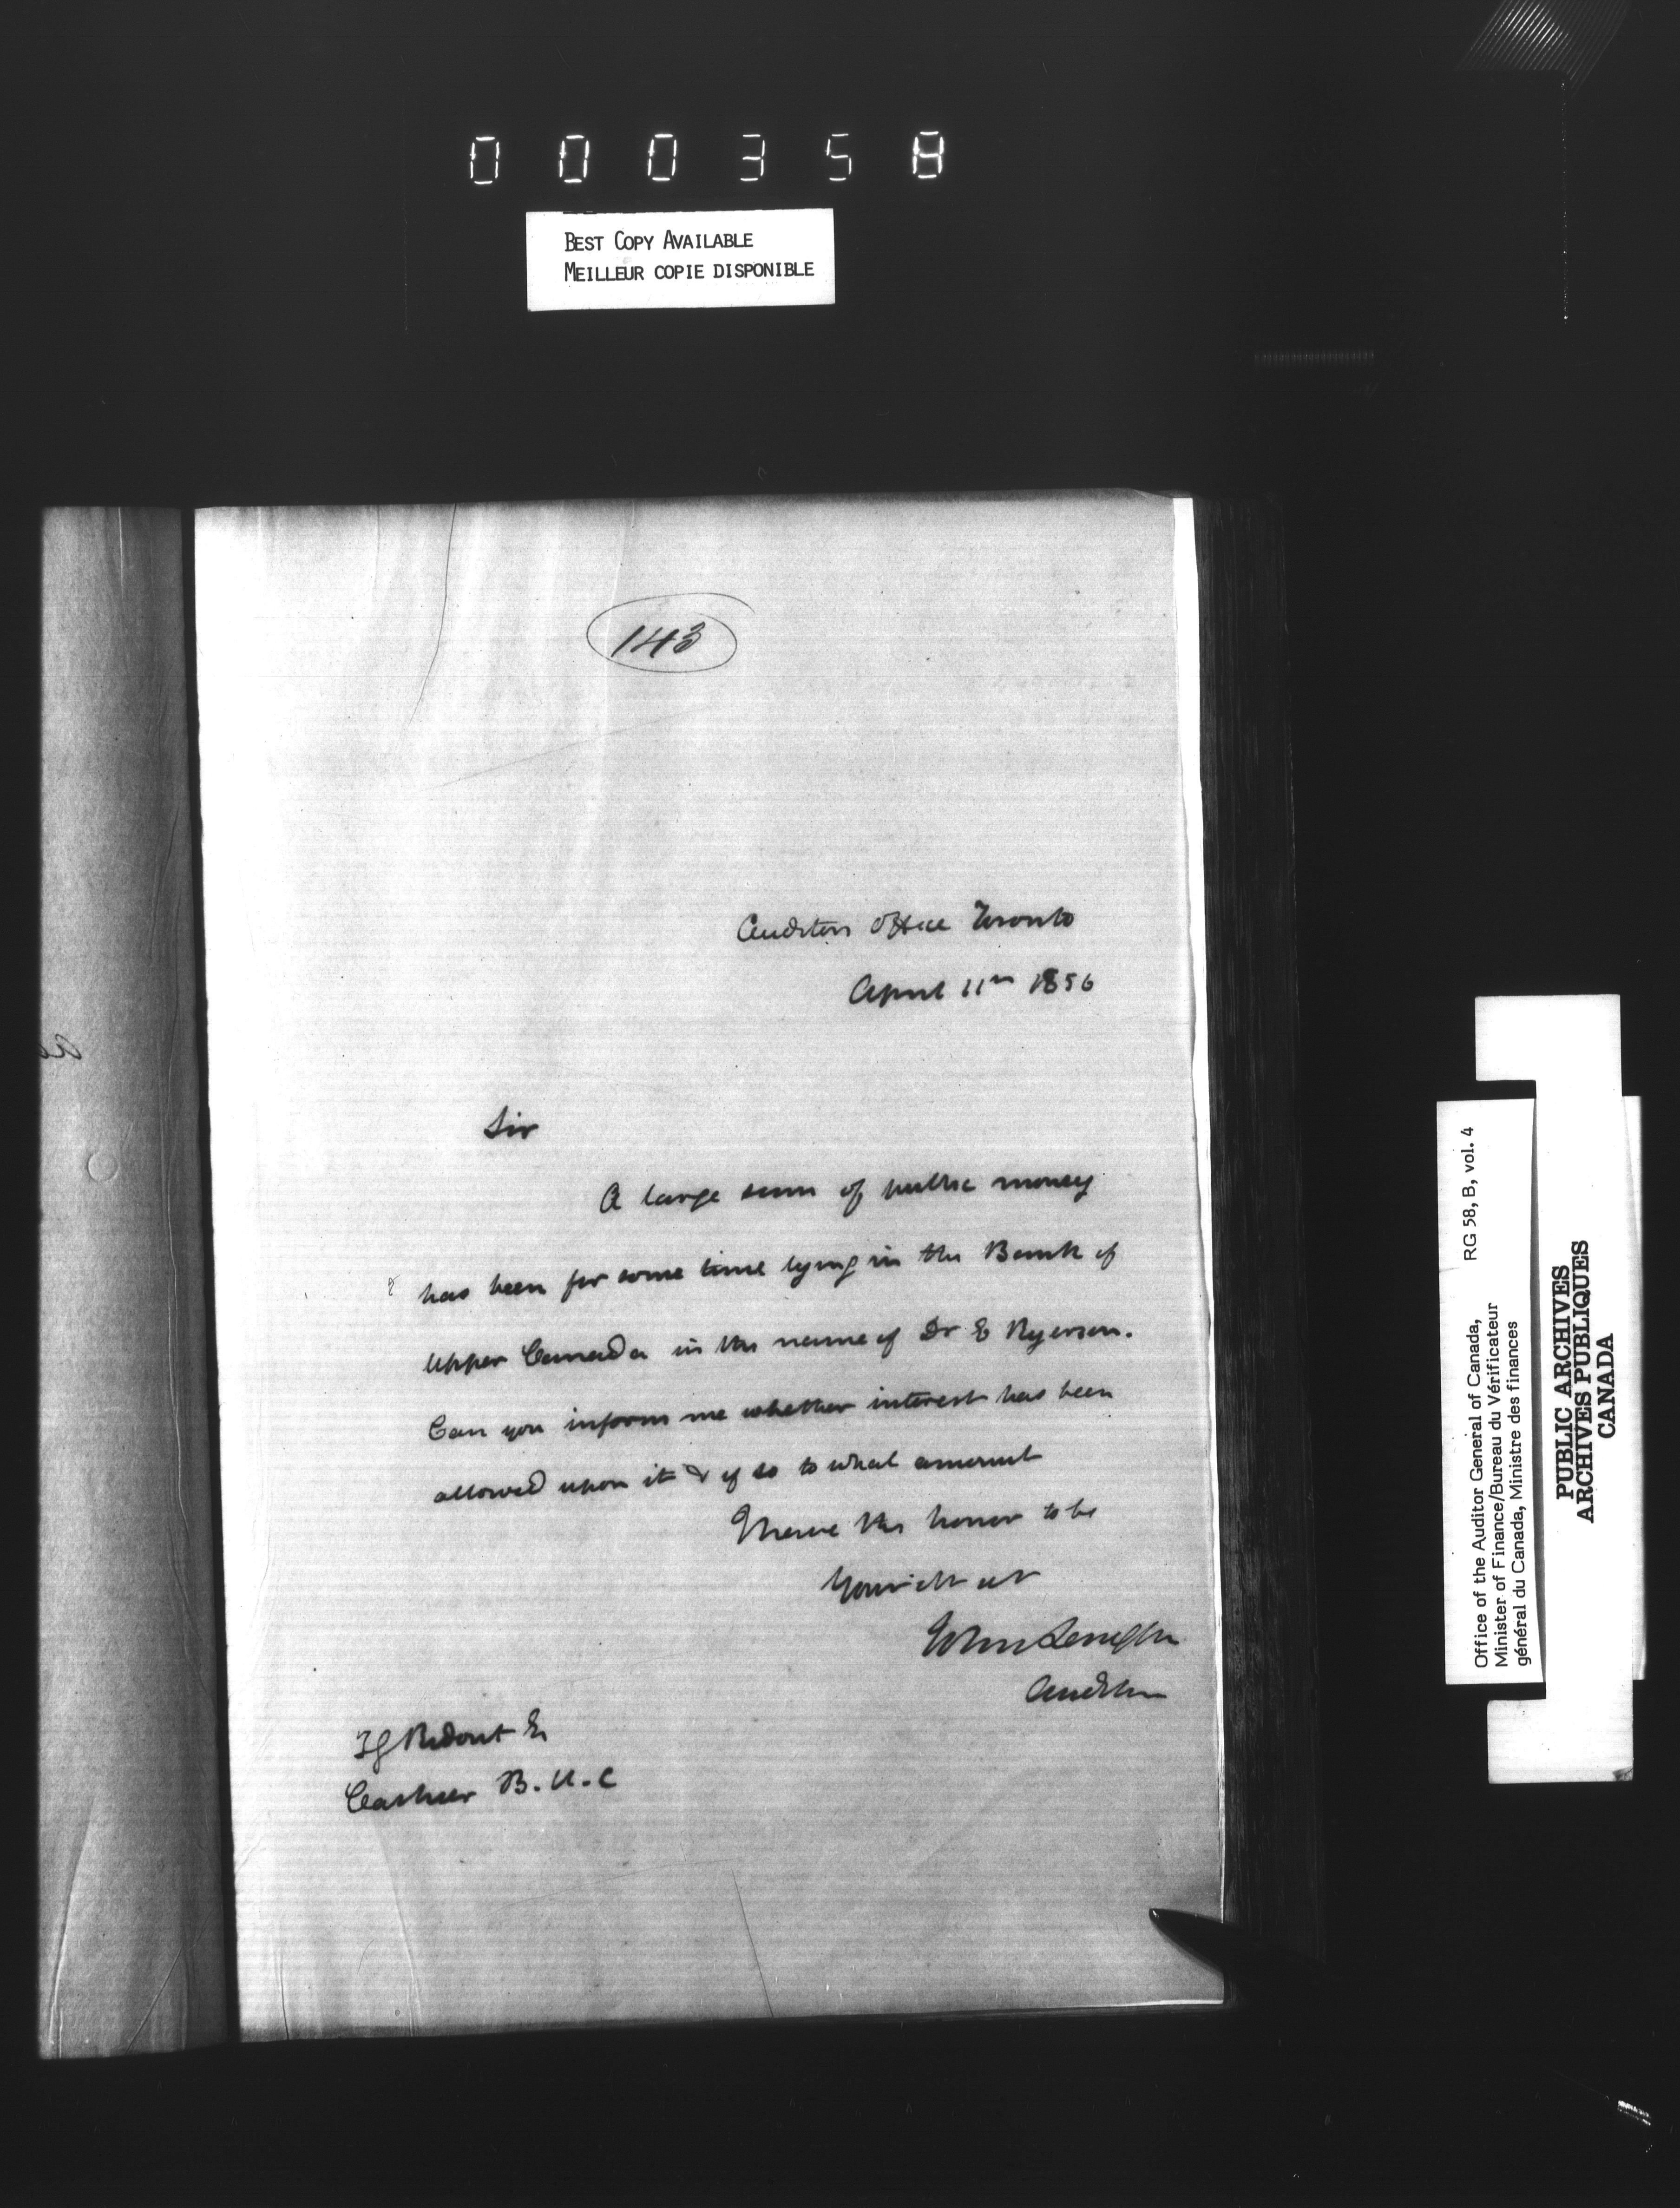 000358
BEST COPY AVAILABLE
MEILLEUR COPIE DISPONIBLE
143
Auditors Office Toronto
April 11th 1856
Sir
A large sum of public money
has been for some time lying in the Bank of
Upper Canada in the name of Dr E Ryerson.
Can you inform me whether interest has been
allowed upon it & if so to what amount
I have the honor to be
Your
John Langton
Auditor
T G Ridout Es
Cashier B. U. C
Office of the Auditor General of Canada, RG 58, B, vol. 4
Minister of Finance/Bureau du Vérificateur
général du Canada, Ministre des finances
PUBLIC ARCHIVES
ARCHIVES PUBLIQUES
CANADA